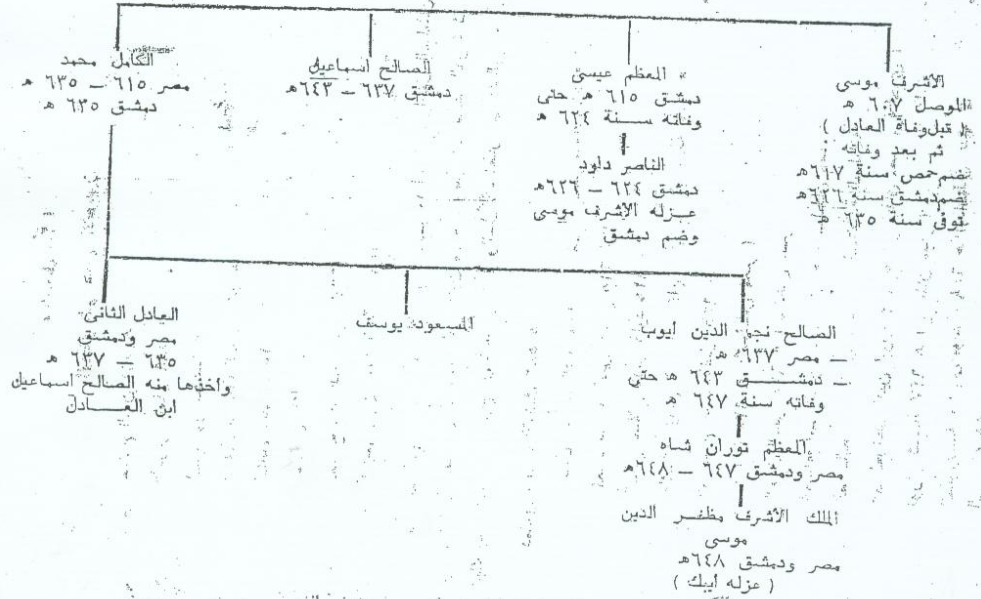 الأشرف موسى
الموصل ٦٠٧ هـ
( قبل وفاة العادل )
ثم بعد وفاته
ضم حمص سنة ٦١٧هـ
ضم دمشق سنة ٦٢٦هـ
توفى سنة ٦٣٥ هـ
المعظم عيسى
دمشق ٦١٥ هـ حتى
وفاته سنة ٦٢٤ هـ
الناصر داود
دمشق ٦٢٤ – ٦٢٦هـ
عزله الأشرف موسى
وضم دمشق
الصالح اسماعيل
دمشق ٦٣٧ – ٦٤٣هـ
الكامل محمد
مصر ٦١٥ – ٦٣٥ هـ
دمشق ٦٣٥ هـ
الصالح نجم الدين أيوب
– مصر ٦٣٧ هـ
– دمشق ٦٤٣ هـ حتى
وفاته سنة ٦٤٧ هـ
المعظم توران شاه
مصر ودمشق ٦٤٧ – ٦٤٨هـ
الملك الأشرف مظفر الدين
موسى
مصر ودمشق ٦٤٨هـ
( عزله أيبك )
المسعود يوسف
العادل الثانى
مصر ودمشق
٦٣٥ – ٦٣٧ هـ
واخذها منه الصالح اسماعيل
ابن العادل